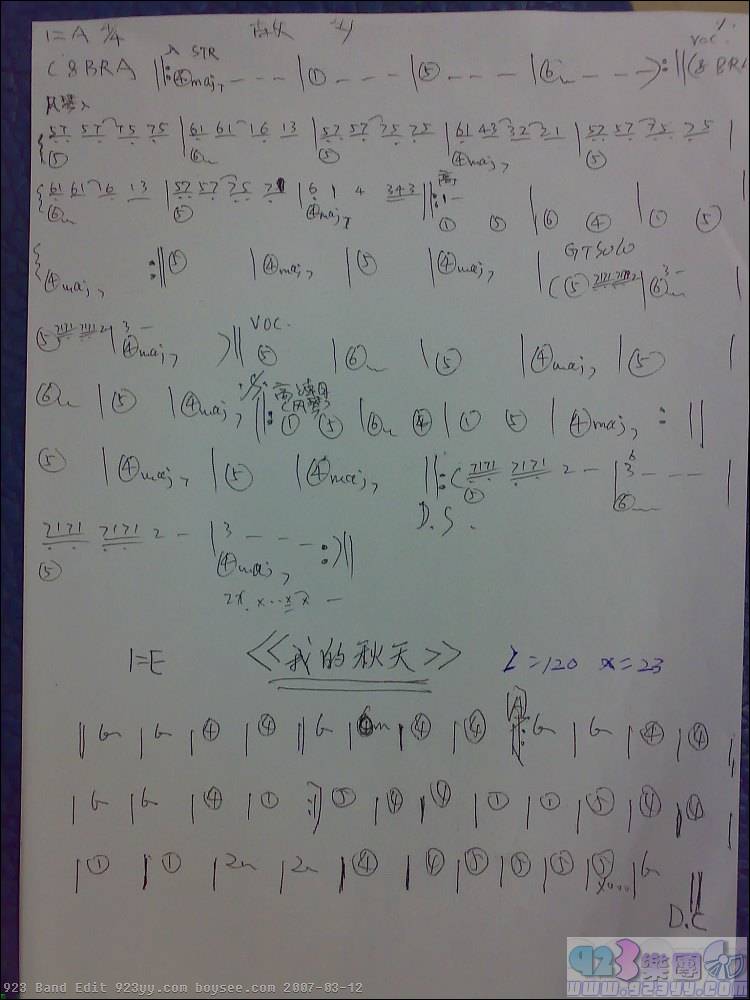 1=A 4/4
入 STR VOC.
( & BRA) ‖: ④maj7 - - - | ① - - - | ⑤ - - - | ⑥m - - - ) :‖ ( & BRA
风琴入
57 57 75 75 | 61 61 16 13 | 57 57 75 75 | 61 43 32 21 | 57 57 75 75 |
⑤ ⑥m ⑤ ④maj7 ⑤
61 61 16 13 | 57 57 75 7 | 6 1 4 343 ‖: 1 -
⑥m ⑤ ④maj7 ① ⑤ | ⑥ ④ | ① ⑤
④maj7 :‖ ⑤ | ④maj7 | ⑤ | ④maj7 | GTSOLO
( ⑤ 7171 7171 2 | ⑥m 3 -
⑤ 7171 7171 2 | 3 - ④maj7 ) ‖ VOC. ⑤ | ⑥m | ⑤ | ④maj7 | ⑤
⑥m | ⑤ | ④maj7 ‖: ① ⑤ | ⑥m ④ | ① ⑤ | ④maj7 :‖
⑤ | ④maj7 | ⑤ | ④maj7 ‖: ( 7171 7171 2 - | 3 - - - |
⑤ ⑥m
D.S.
7171 7171 2 - | 3 - - - :) ‖
⑤ ④maj7
1=E <<我的秋天>> Z=120 X=23
‖ 6m | 6m | ④ | ④ ‖ 6m | 6m | ④ | ④ [A] ‖: 6m | 6m | ④ | ④ |
| 6m | 6m | ④ | ① :‖ ⑤ | ④ | ④ | ① | ① | ⑤ | ④ | ④ |
| ① | ① | 2m | 2m | ④ | ④ | ⑤ | ⑤ | ⑤ | ⑤ | 6m ‖
D.C
923 Band Edit 923yy.com boysee.com 2007-03-12
923樂團
www.923yy.com